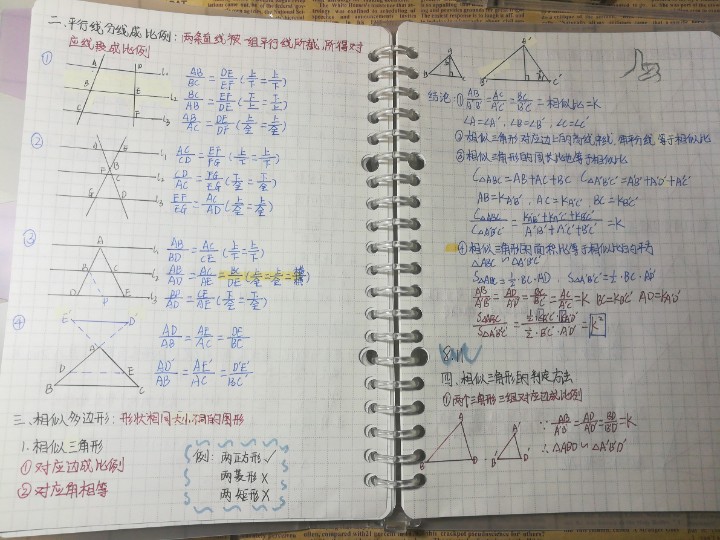 二、平行线分线成比例：两条直线被一组平行线所截，所得对
应线段成比例
①
A D l₁
B E l₂
C F l₃
AB/BC = DE/EF (上/下 = 上/下)
BC/AB = EF/DE (下/上 = 下/上)
AB/AC = DE/DF (上/全 = 上/全)
②
A E l₁
l₂
G D l₃
AC/CD = EF/FG (上/下 = 上/下)
CD/AC = FG/EG (下/全 = 下/全)
EF/EG = AC/AD (上/全 = 上/全)
③
A l₁
B C l₂
D E l₃
AB/BD = AC/CE (上/下 = 上/下)
AB/AD = AC/AE = BC/DE (上/全 = 上/全 =
BD/AD = CE/AE (下/全 = 下/全)
④
E' D'
A
D E
B C
AD/AB = AE/AC = DE/BC
AD'/AB = AE'/AC = D'E'/BC
三、相似多边形：形状相同大小不同的图形
1.相似三角形
① 对应边成比例
② 对应角相等
例：两正方形 ✓
两菱形 ×
两矩形 ×
A A'
B C B' C'
结论：① AB/A'B' = AC/A'C' = BC/B'C' = 相似比 = K
∠A=∠A'，∠B=∠B'，∠C=∠C'
② 相似三角形对应边上的高线，中线，角平分线，等于相似比
③ 相似三角形的周长比也等于相似比
C△ABC = AB+AC+BC C△A'B'C' = A'B'+A'C'+
AB=KA'B'，AC=KA'C' BC=KB'C'
C△ABC/C△A'B'C' = KA'B'+KA'C'+KB'C'/A'B'+A'C'+B'C' = K
④ 相似三角形的面积比等于相似比的平方
△ABC ∽ △A'B'C'
S△ABC = 1/2·BC·AD，S△A'B'C' = 1/2·B'C'·A'D'
AB/A'B' = AD/A'D' = BC/B'C' = AC/A'C' = K BC=KB'C' AD=KA'D'
S△ABC/S△A'B'C' = 1/2·KB'C'·KA'D'/1/2·B'C'·A'D' = K²
四、相似三角形的判定方法
① 两个三角形三组对应边成比例
A
B D
A'
B' D'
∵ AB/A'B' = AD/A'D' = BD/B'D' = K
∴ △ABD ∽ △A'B'D'